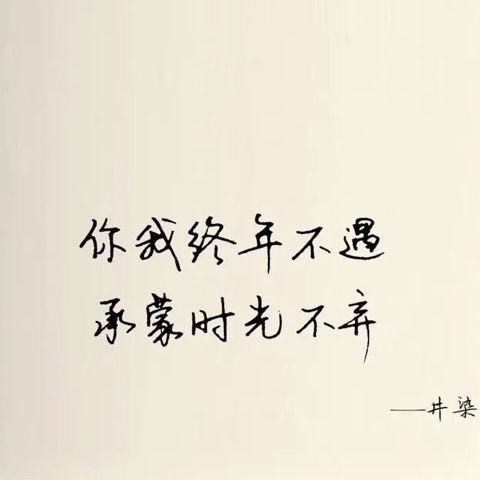 你我终年不遇
承蒙时光不弃
——井染